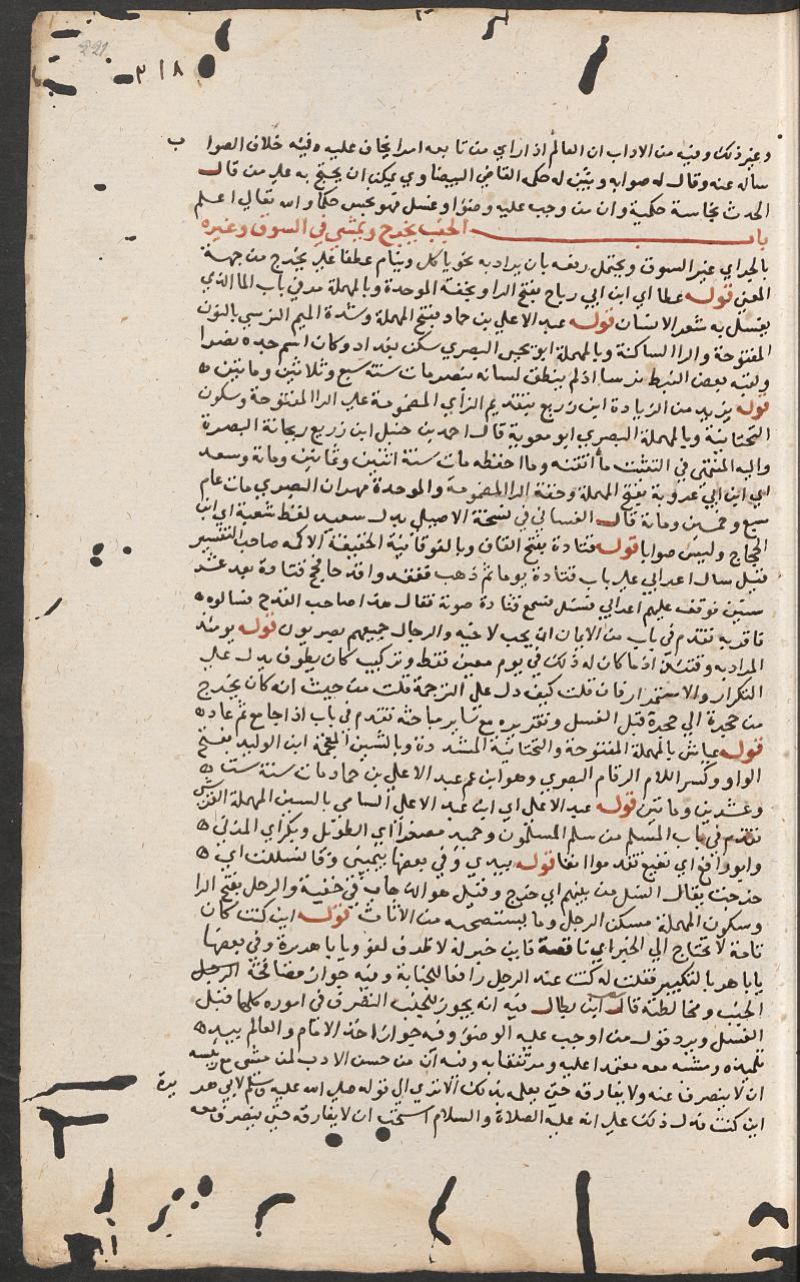 221
٣١٨
وغير ذلك وفيه من الاداب ان العالم اذا راي من تابعه امرا يخاف عليه فيه خلاف الصوا ب
ساله عنه وقال له صوابه وبين له حكمه القاضي البيضاوي يمكن ان يحتج به علي من قال
الحدث نجاسة حكمية وان من وجب عليه وضوا وغسل فهو نجس حكما والله تعالي اعلم
باب الجنب يخرج ويمشي في السوق وغيره
بالجر اي غير السوق ويحتمل رفعه بان يراد به نحو ياكل وينام عطفا علي يخرج من جهة
المعني قوله عطا اي ابن ابي رباح بفتح الرا وخفة الموحدة وبالمهملة مر في باب الما الذي
يغسل به شعر الانسان قوله عبد الاعلي بن حماد بفتح المهملة وشدة الميم النرسي بالنون
المفتوحة والرا الساكنة وبالمهملة ابو يحيي البصري سكن بغداد وكان اسم جده نصرا
ولقبه بعض النبط نرسا اذ لم ينطق لسانه بنصر مات سنة سبع وثلاثين ومايتين ه
قوله يزيد من الزيادة ابن زريع بتقديم الزاي المضمومة علي الرا المفتوحة وسكون
التحتانية وبالمهملة البصري ابو معوية قال احمد بن حنبل ابن زريع ريحانة البصرة
واليه المنتهي في التثبت ما اتقنه وما احفظه مات سنة اثنين وثمانين وماية وسعيد
اي ابن ابي عروبة بفتح المهملة وخفة الرا المضمومة والموحدة مهران البصري مات عام
سبع وخمسين وماية قال الغساني في نسخة الاصيلي بدل سعيد لفظ شعبة اي ابن
الحجاج وليس صوابا قوله قتادة بفتح القاف وبالفوقانية الخفيفة الاكمه صاحب التفسير
قيل سال اعرابي علي باب قتادة يوما ثم ذهب ففقد واقدحا فحج قتادة بعد عشر
سنين فوقف عليهم اعرابي فسئل فسمع قتادة صوته فقال هذا صاحب القدح فسالوه ه
فاقر به تقدم في باب من الايمان ان يحب لاخيه والرجال جميعهم بصريون قوله يومئذ
المراد به وقتئذ اذ ما كان له ذلك في يوم معين فقط وتركيب كان يطوف يدل علي
التكرار والاستمرار فان قلت كيف دل علي الترجمة قلت من حيث انه كان يخرج
من حجرة الي حجرة قبل الغسل وتقريره مع ساير مباحثه تقدم في باب اذا جامع ثم عاد ه
قوله عياش بالمهملة المفتوحة والتحتانية المشددة وبالشين المعجمة ابن الوليد بفتح
الواو وكسر اللام الرقام البصري وهو ابن عم عبد الاعلي بن حماد مات سنة ست ه
وعشرين ومايتين قوله عبد الاعلي اي ابن عبد الاعلي السامي بالسين المهملة القرشي
تقدم في باب المسلم من سلم المسلمون وحميد مصغرا اي الطويل وبكر اي المزني ه
وابو رافع اي نفيع تقدموا انفا قوله بيدي وفي بعضها بيميني وفانسللت اي ه
خرجت يقال انسل من بينهم اي خرج وقيل هو الذهاب في خفية والرحل بفتح الرا
وسكون المهملة مسكن الرجل وما يستصحبه من الاثاث قوله اين كنت كان
تامة لا تحتاج الي الخبر اي ناقصة فاين خبر له لا ظرف لغو ويا با هريرة وفي بعضها
يا با هر بالتكبير فقلت له كنت عند الرجل رافعا للجنابة وفيه جواز مصافحة الرجل
الجنب ومخالطته قال ابن بطال فيه انه يجوز للجنب التصرف في اموره كلها قبل
الغسل ويرد قول من اوجب عليه الوضو وفيه جواز اخذ الامام والعالم بيد ه
تلميذه ومشيه معه معتمدا عليه ومرتفقا به وفيه ان من حسن الادب لمن مشي مع رئيسه
ان لا ينصرف عنه ولا يفارقه حتي يعلمه بذلك الا تري الي قوله صلي الله عليه وسلم لابي هر يرة
اين كنت فدل ذلك علي انه عليه الصلاة والسلام استحب ان لا يفارقه حتي ينصرف معه